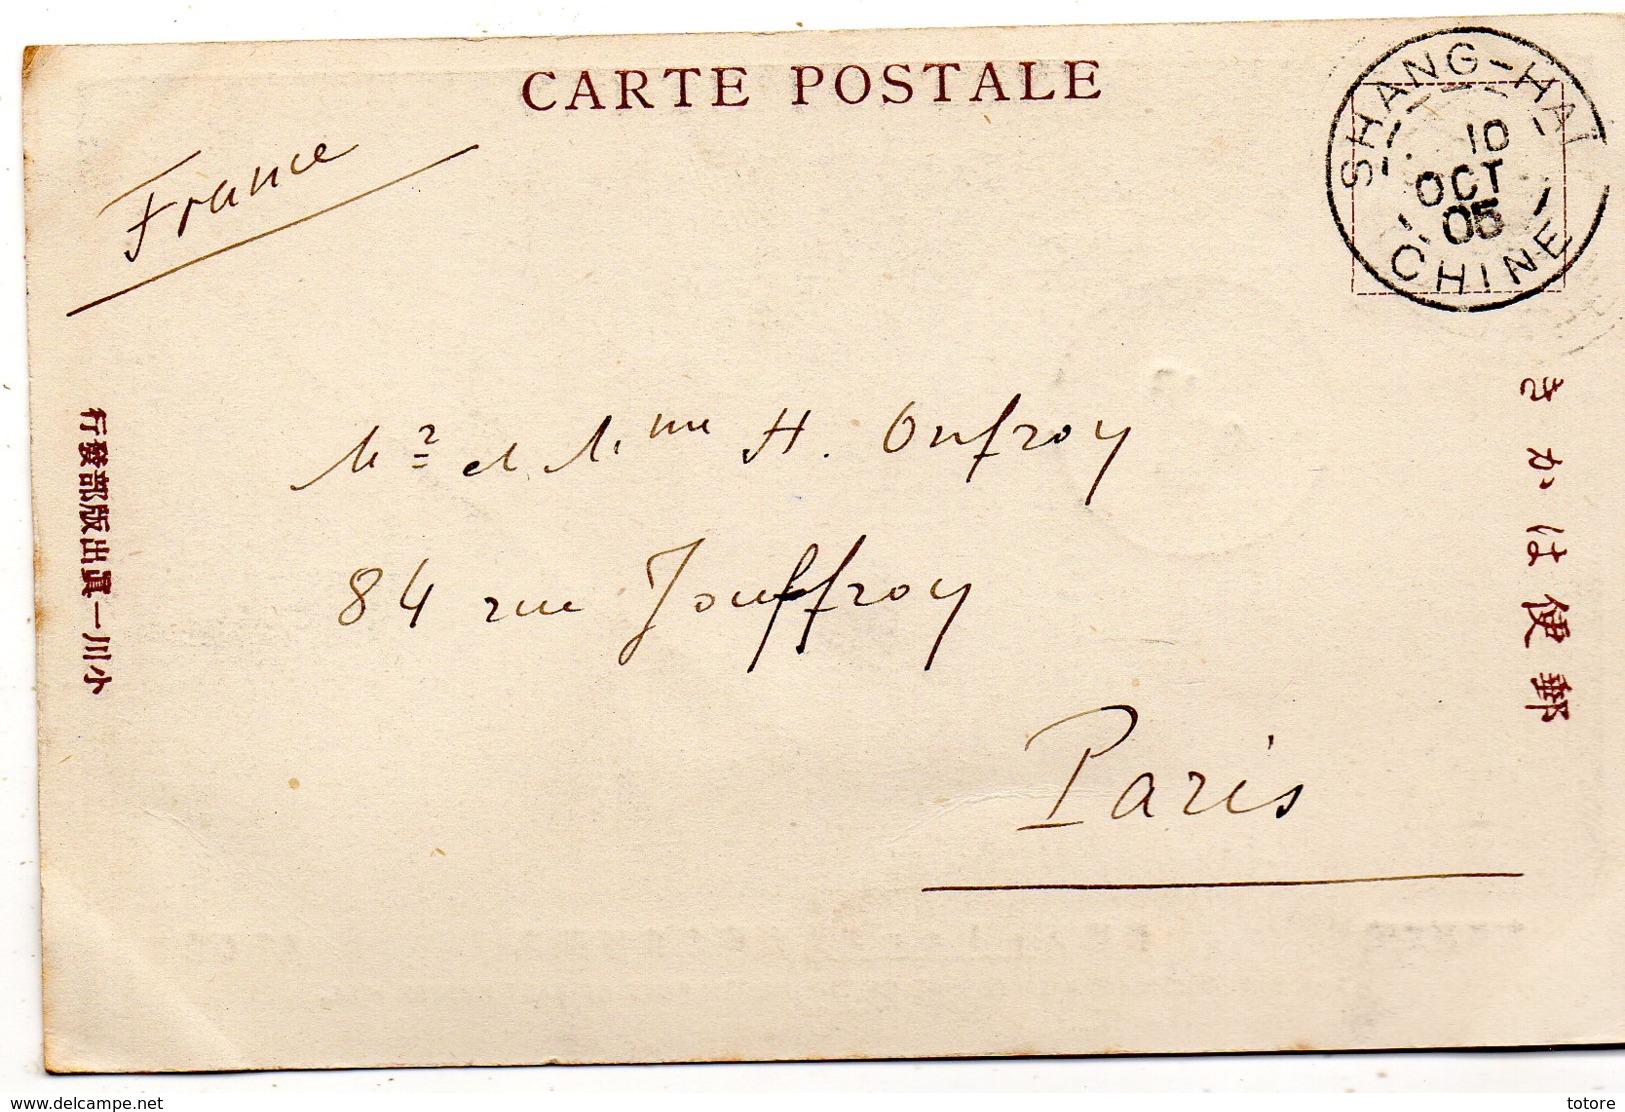 CARTE POSTALE
SHANG-HAI
10
OCT
05
CHINE
France
きかは便郵
行發部版出眞一川小
Mr et Mme H. Onfroy
84 rue Jouffroy
Paris
www.delcampe.net
totore